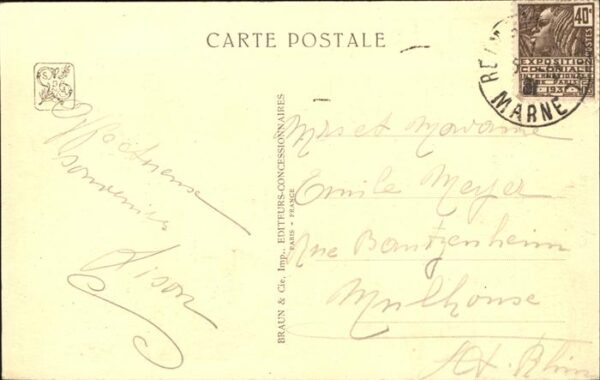 CARTE POSTALE
Affectueux
souvenirs
Lison
BRAUN & Cie, Imp., EDITEURS-CONCESSIONNAIRES
PARIS - FRANCE
40c
POSTES
EXPOSITION
COLONIALE
INTERNATIONALE
PARIS 1931
MARNE
Mr et Madame
Emile Meyer
Rue Bantzenheim
Mulhouse
Ht. Rhin